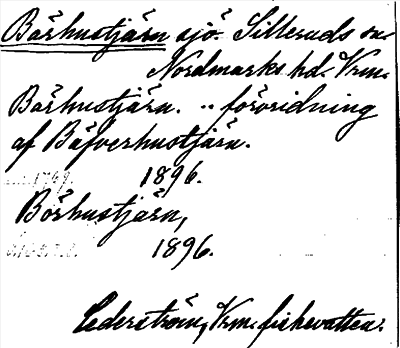 Bärhustjärn sjö. Silleruds sn
Nordmarks hd. Vrm.
Bärhustjärn. .. förvridning
af Bäfverhustjärn.
1896.
Börhustjärn,
1896.
Cederström, Vrm. fiskevatten.